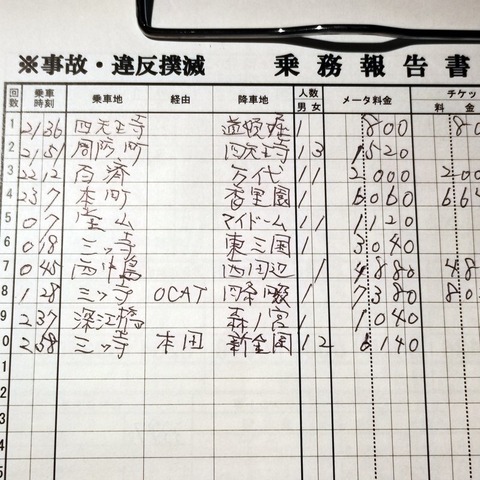 ※事故・違反撲滅 乗務報告書
回数 乗車時刻 乗車地 経由 降車地 人数 男女 メータ料金 チケッ 料金
1 2136 四天王寺 道頓堀 1 800 80
2 2151 周防町 四天王寺 1 3 1520
3 2212 百済 今代 1 1 2000 200
4 237 本町 香里園 1 6060 66
5 07 堂山 マイドーム 1 1 1120
6 018 三ッ寺 東三国 1 3040
7 045 西中島 西田辺 1 4880 48
8 128 三ッ寺 OCAT 四条畷 1 7380 80
9 237 深江橋 森ノ宮 1 1040
0 258 三ッ寺 本田 新金岡 1 2 6140